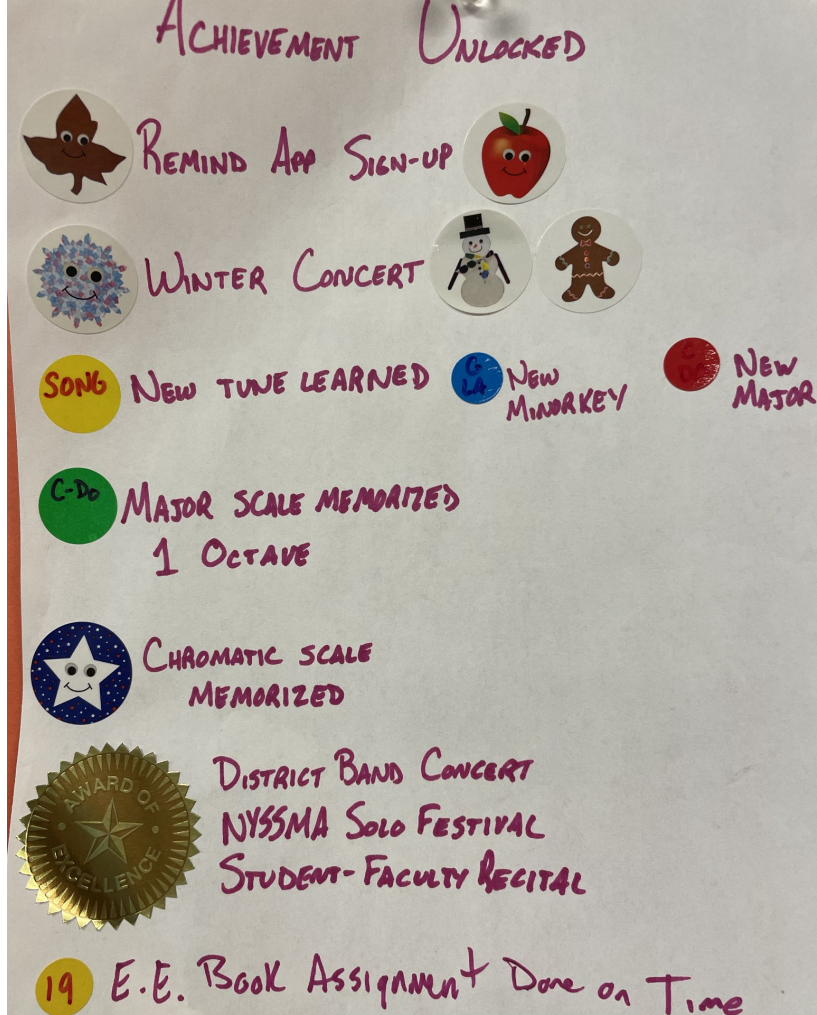 ACHIEVEMENT UNLOCKED
REMIND APP SIGN-UP
WINTER CONCERT
SONG NEW TUNE LEARNED
G
LA
NEW
MINOR KEY
C
DO
NEW
MAJOR
C-DO MAJOR SCALE MEMORIZED
1 OCTAVE
CHROMATIC SCALE
MEMORIZED
AWARD OF
EXCELLENCE
DISTRICT BAND CONCERT
NYSSMA SOLO FESTIVAL
STUDENT-FACULTY RECITAL
19 E.E. Book Assignment Done on Time